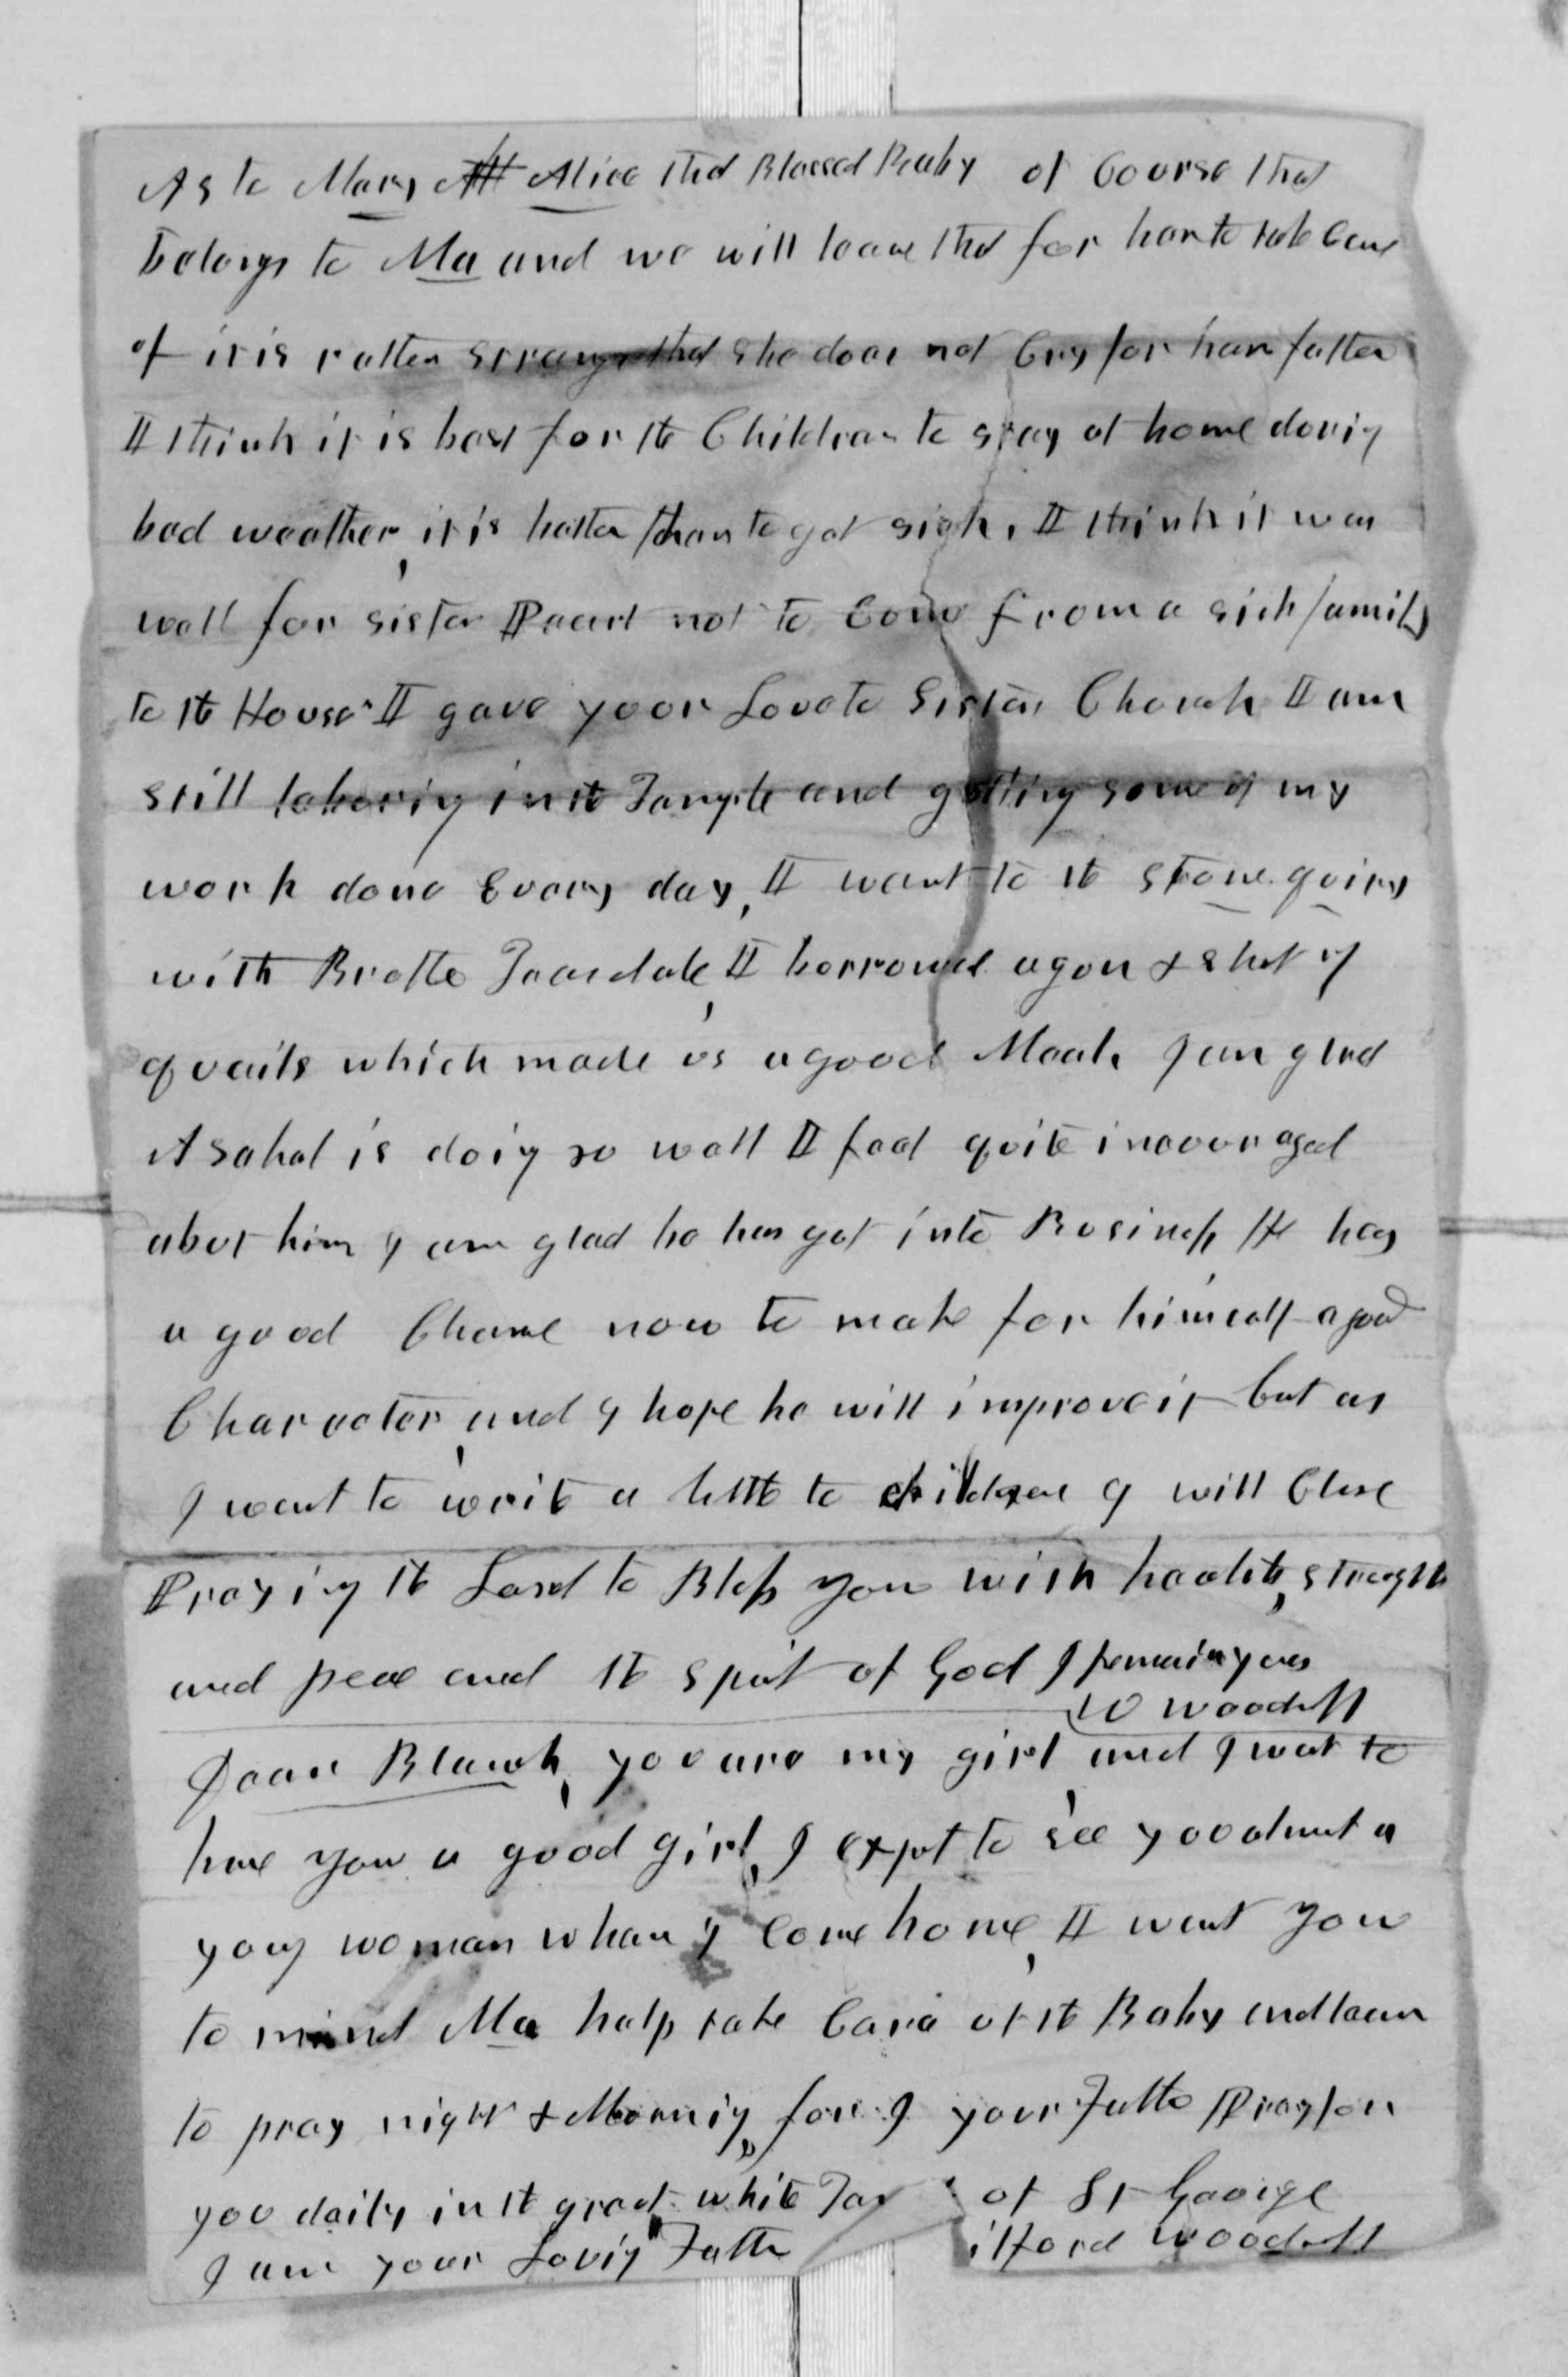 As to Mary Alice that Blessed Baby of Course that
belongs to Ma and we will leave that for her to take Care
of it is rather strange that she does not Cry for her father
I think it is best for the Children to stay at home during
bad weather, it is better than to get sick, I think it was
well for sister not to Come from a sick family
to the House I gave your Love to Sister Church I am
still laboring in the Temple and getting some of my
work done Every day, I went to the stone quiry
with Brother Teasdale, I borrowed a gun & shot
quails which made us a good Meal I am glad
Asahel is doing so well I feel quite incouraged
about him I am glad he has got into Business He has
a good Chance now to make for himself a good
Character, and I hope he will improve it but as
I want to write a little to children I will Close
Praying the Lord to Bless you with health, strength
and peace and the spirit of God I remain yours
W Woodruff
Dear Blanch, you are my girl, and I want to
have you a good girl, I expect to see you about a
young woman when I Come home, I want you
to mind Ma help take Care of the Baby and learn
to pray night & Morning, for I your Father Pray for
you daily in the great white Tem of St George
I am your Loving Father ilford Woodruff